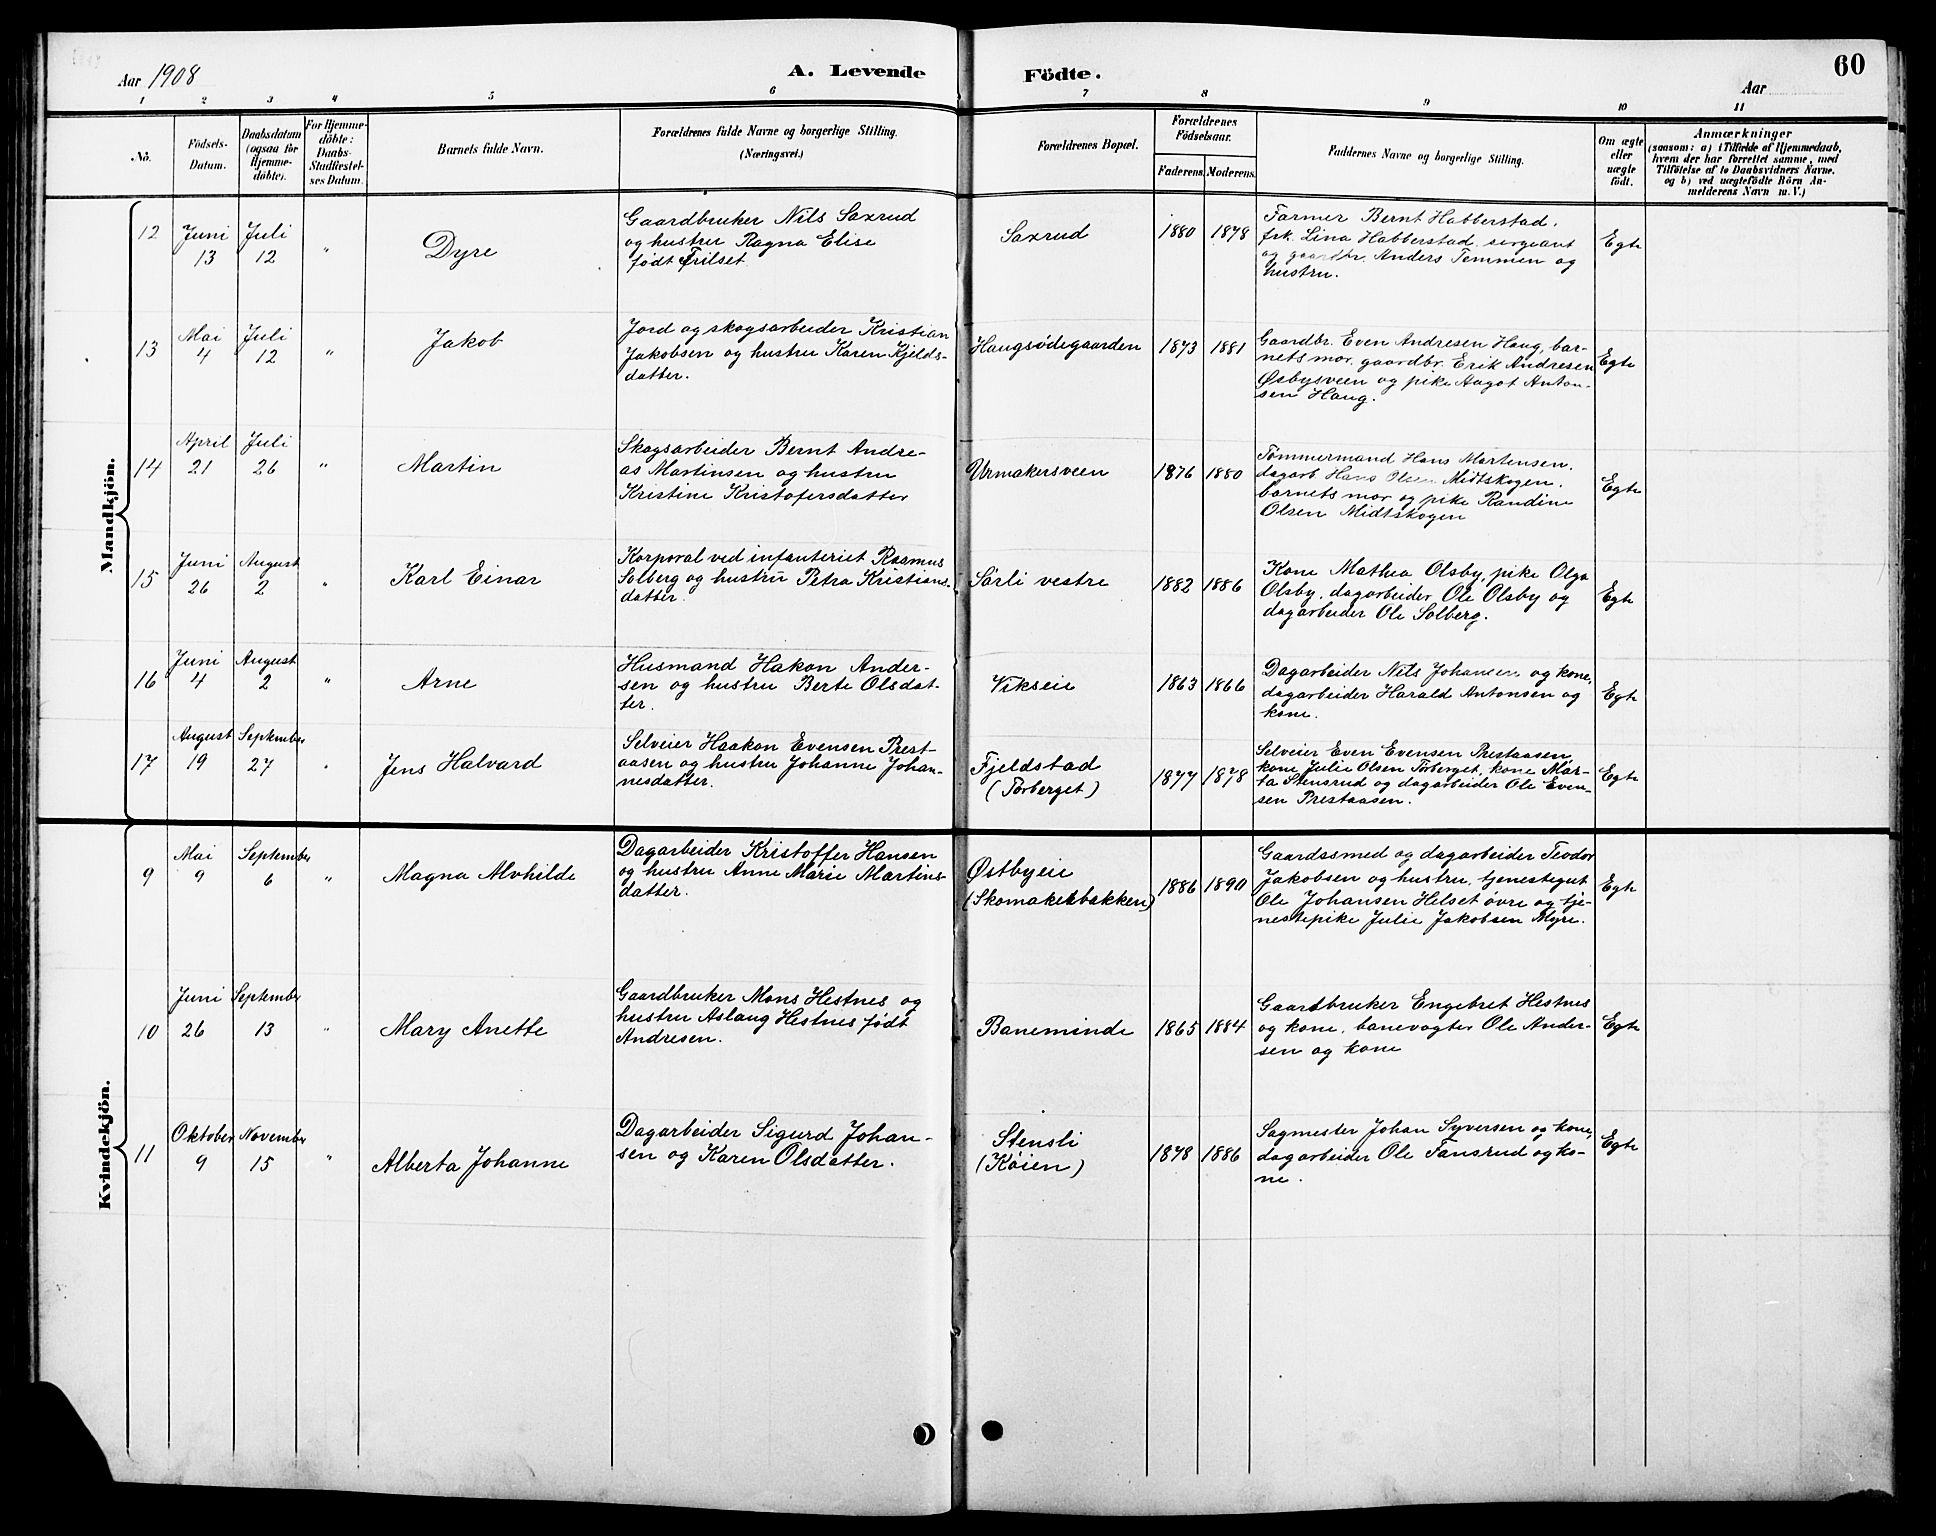 Aar 1908
A. Levende
Födte.
Aar
60
1 2 3 4 5 6 7 8 9 10 11
No.
Födsels-
Datum.
Daabsdatum
(ogsaa for
Hjemme-
döbte).
For Hjemme-
döbte:
Daabs-
Stadfæstel-
ses Datum.
Barnets fulde Navn.
Forældrenes fulde Navne og borgerlige Stilling.
(Næringsvei.)
Forældrenes Bopæl.
Forældrenes
Födselsaar.
Faderens. Moderens.
Faddernes Navne og borgerlige Stilling.
Om ægte
eller
uægte
født.
Anmærkninger
(saasom: a) i Tilfælde af Hjemmedaab,
hvem der har forrettet samme, med
Tilföielse af to Daabsvidners Navne.
og b) ved uægtefödte Börn An-
melderens Navn m. V.)
Mandkjön.
12
Juni
13
Juli
12
"
Dyre
Gaardbruker Nils Saxrud
og hustru Ragna Elise
født Frilset.
Saxrud
1880
1878
Farmer Bernt Habberstad,
frk. Lina Habberstad, sergeant
og gaardbr. Anders Temmen og
hustru.
Egte
13
Mai
4
Juli
12
"
Jakob
Jord og skogsarbeider Kristian
Jakobsen og hustru Karen Kjelds-
datter.
Haugsødegaarden
1873
1881
Gaardbr. Even Andresen Haug, bar-
nets mor, gaardbr. Erik Andresen
Øsbysveen og pike Aagot Anton-
sen Haug.
Egte
14
April
21
Juli
26
"
Martin
Skogsarbeider Bernt Andre-
as Martinsen og hustru
Kristine Kristofersdatter
Urmakersveen
1876
1880
Tømmermand Hans Martensen,
dagarb Hans Olsen Midtskogen,
barnets mor og pike Randine
Olsen Midtskogen
Egte
15
Juni
26
August
2
"
Karl Einar
Korporal ved infanteriet Rasmus
Solberg og hustru Petra Kristians-
datter.
Sørli vestre
1882
1886
Kone Mathea Olsby, pike Olga
Olsby, dagarbeider Ole Olsby og
dagarbeider Ole Solberg.
Egte
16
Juni
4
August
2
"
Arne
Husmand Hakon Ander-
sen og hustru Berte Olsdat-
ter.
Vikseie
1863
1866
Dagarbeider Nils Johansen og kone,
dagarbeider Harald Antonsen og
kone.
Egte
17
August
19
September
27
"
Jens Halvard
Selveier Haakon Evensen Prest-
aasen og hustru Johanne Johan-
nesdatter.
Fjeldstad
(Torberget)
1877
1878
Selveier Even Evensen Prestaasen,
kone Julie Olsen Torberget, kone Mar-
ta Stensrud og dagarbeider Ole Even-
sen Prestaasen.
Egte
Kvindekjön.
9
Mai
9
September
6
"
Magna Alvhilde
Dagarbeider Kristoffer Hansen
og hustru Anne Marie Martins-
datter.
Østbyeie
(Skomakerbakken)
1886
1890
Gaardssmed og dagarbeider Teodor
Jakobsen og hustru, tjenestegut
Ole Johansen Helset øvre og tje-
nestepike Julie Jakobsen Myre.
Egte
10
Juni
26
September
13
"
Mary Anette
Gaardbruker Mons Hestnes og
hustru Aslaug Hestnes født
Andresen.
Baneminde
1865
1884
Gaardbruker Engebret Hestnes
og kone, banevogter Ole Ander-
sen og kone
Egte
11
Oktober
9
November
15
"
Alberta Johanne
Dagarbeider Sigurd Johan-
sen og Karen Olsdatter.
Stensli
(Køien)
1878
1886
Sagmester Johan Syversen og kone,
dagarbeider Ole Fansrud og ko-
ne.
Egte